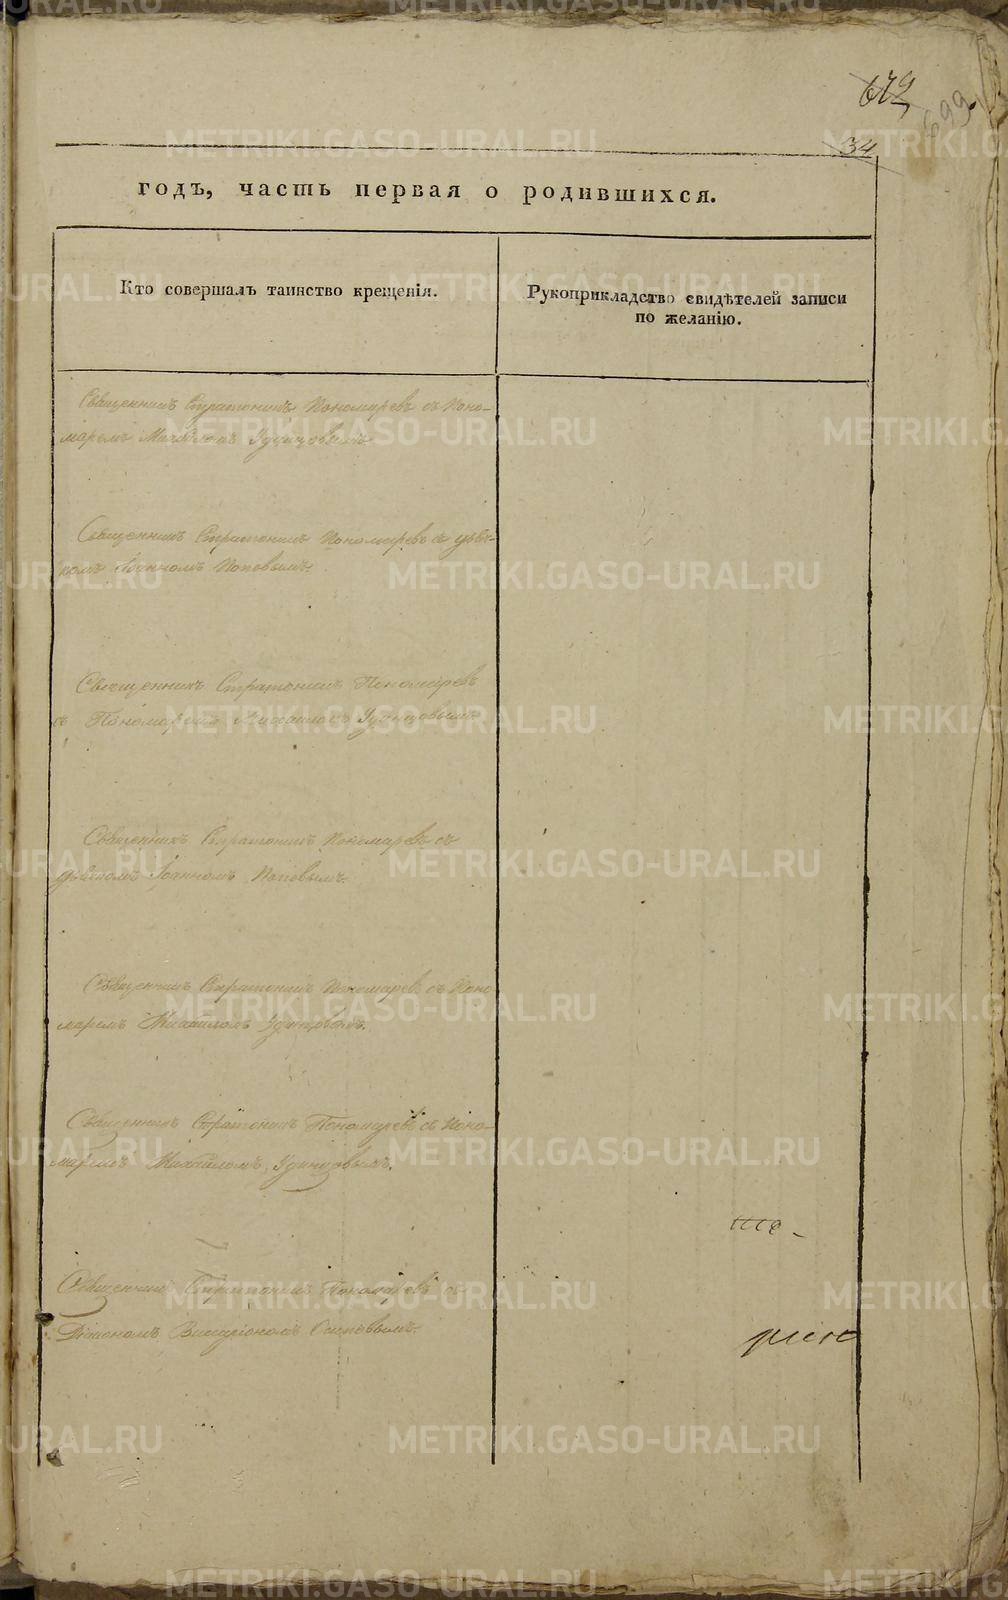 679
699
34
годъ, часть первая о родившихся.
Кто совершалъ таинство крещенія.
Рукоприкладство свидѣтелей записи
по желанію.
Священникъ Стратоникъ Пономаревъ съ Поно-
маремъ Михаиломъ Удинцовымъ.
Священникъ Стратоникъ Пономаревъ съ дьяч-
комъ Іоанномъ Поповымъ.
Священникъ Стратоникъ Пономаревъ
съ Пономаремъ Михаиломъ Удинцовымъ.
Священникъ Стратоникъ Пономаревъ съ
дьячкомъ Іоанномъ Поповымъ.
Священникъ Стратоникъ Пономаревъ съ Поно-
маремъ Михаиломъ Удинцовымъ.
Священникъ Стратоникъ Пономаревъ съ Поно-
маремъ Михаиломъ Удинцовымъ.
Священникъ Стратоникъ Пономаревъ съ
Діакономъ Виссаріономъ Осиповымъ.
METRIKI.GASO-URAL.RU